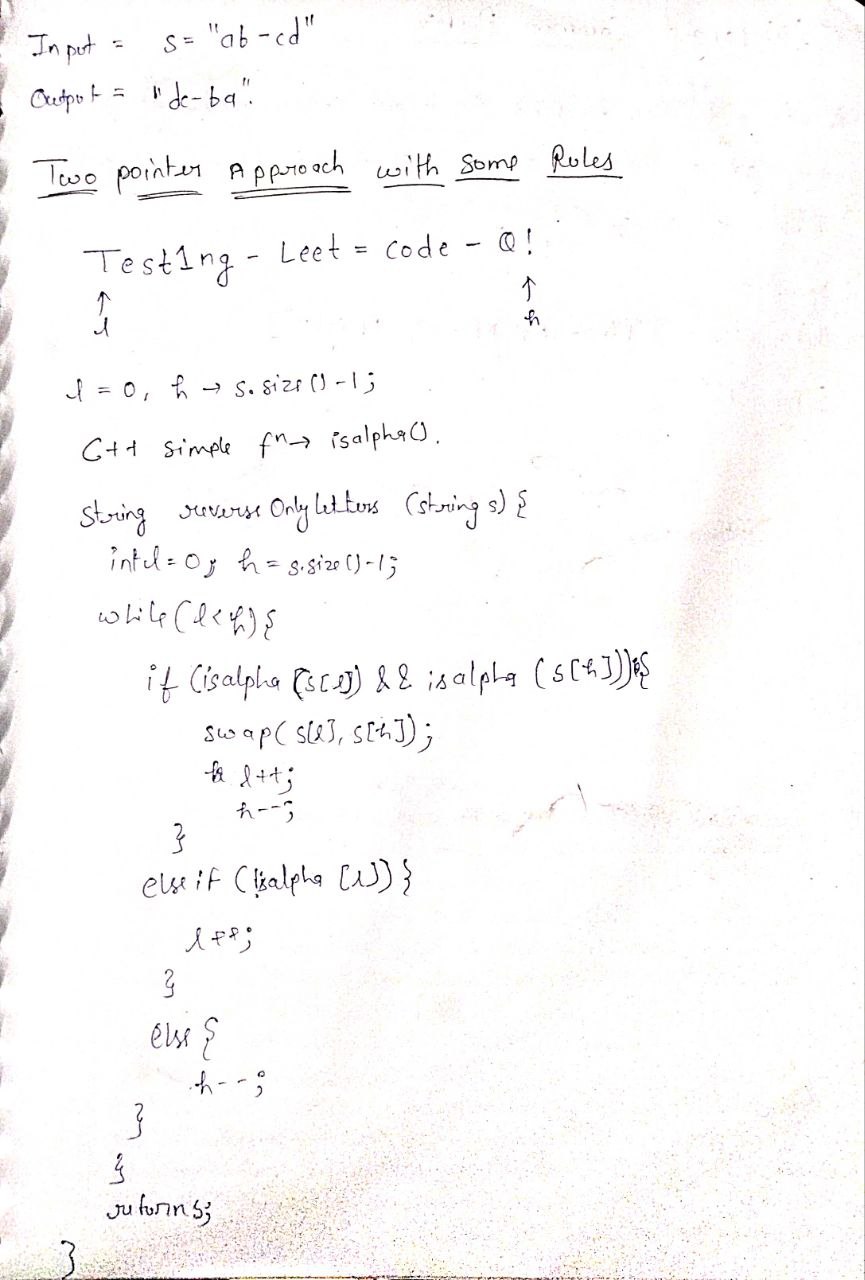 Input = s= "ab-cd"
Output = "dc-ba".
Two pointer Approach with Some Rules
Test1ng - Leet = code - Q!
↑ ↑
l h
l = 0, h → s.size()-1;
C++ simple fn → isalpha().
String reverse Only letters (string s) {
int l = 0; h = s.size()-1;
while (l<h) {
if (isalpha (s[l]) && isalpha (s[h])) {
swap( s[l], s[h]);
l++;
h--;
}
else if (!isalpha [l]) }
l++;
}
else {
h--;
}
}
return s;
}